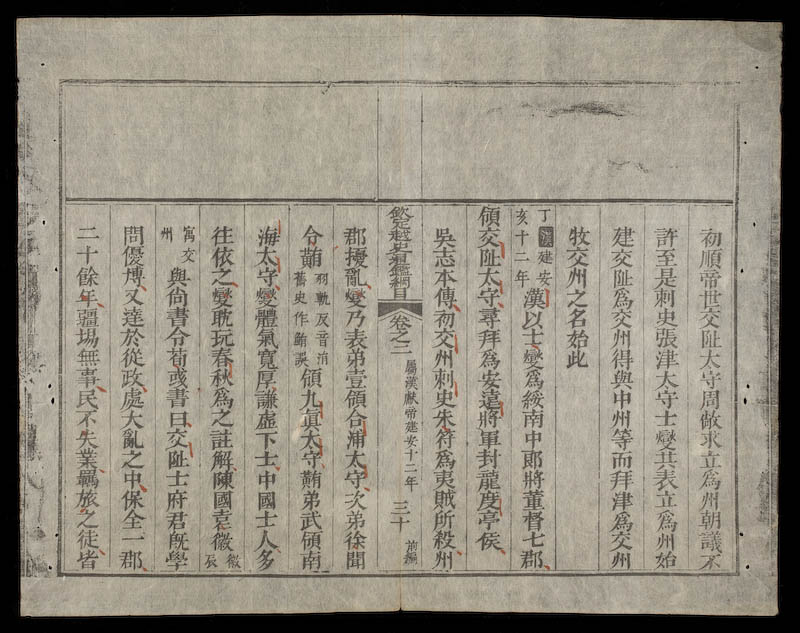 初順帝世交阯太守周敞求立爲州朝議不
許至是刺史張津太守士燮共表立爲州始
建交阯爲交州得與中州等而拜津爲交州
牧交州之名始此
丁亥漢建安十二年漢以士燮爲綏南中郎將董督七郡
領交阯太守尋拜爲安遠將軍封龍度亭侯
吳志本傳初交州刺史朱符爲夷賊所殺州
欽定越史通鑑綱目 卷之二 屬漢獻帝建安十二年 三十 前編
郡擾亂燮乃表弟壹領合浦太守次弟徐聞
令䵋羽軌反音洧舊史作鮪誤領九眞太守䵋弟武領南
海太守燮體氣寬厚謙虛下士中國士人多
往依之燮耽玩春秋爲之註解陳國袁徽徽辰
寓交州與尚書令荀彧書曰交阯士府君旣學
問優博又達於從政處大亂之中保全一郡
二十餘年疆場無事民不失業羈旅之徒皆